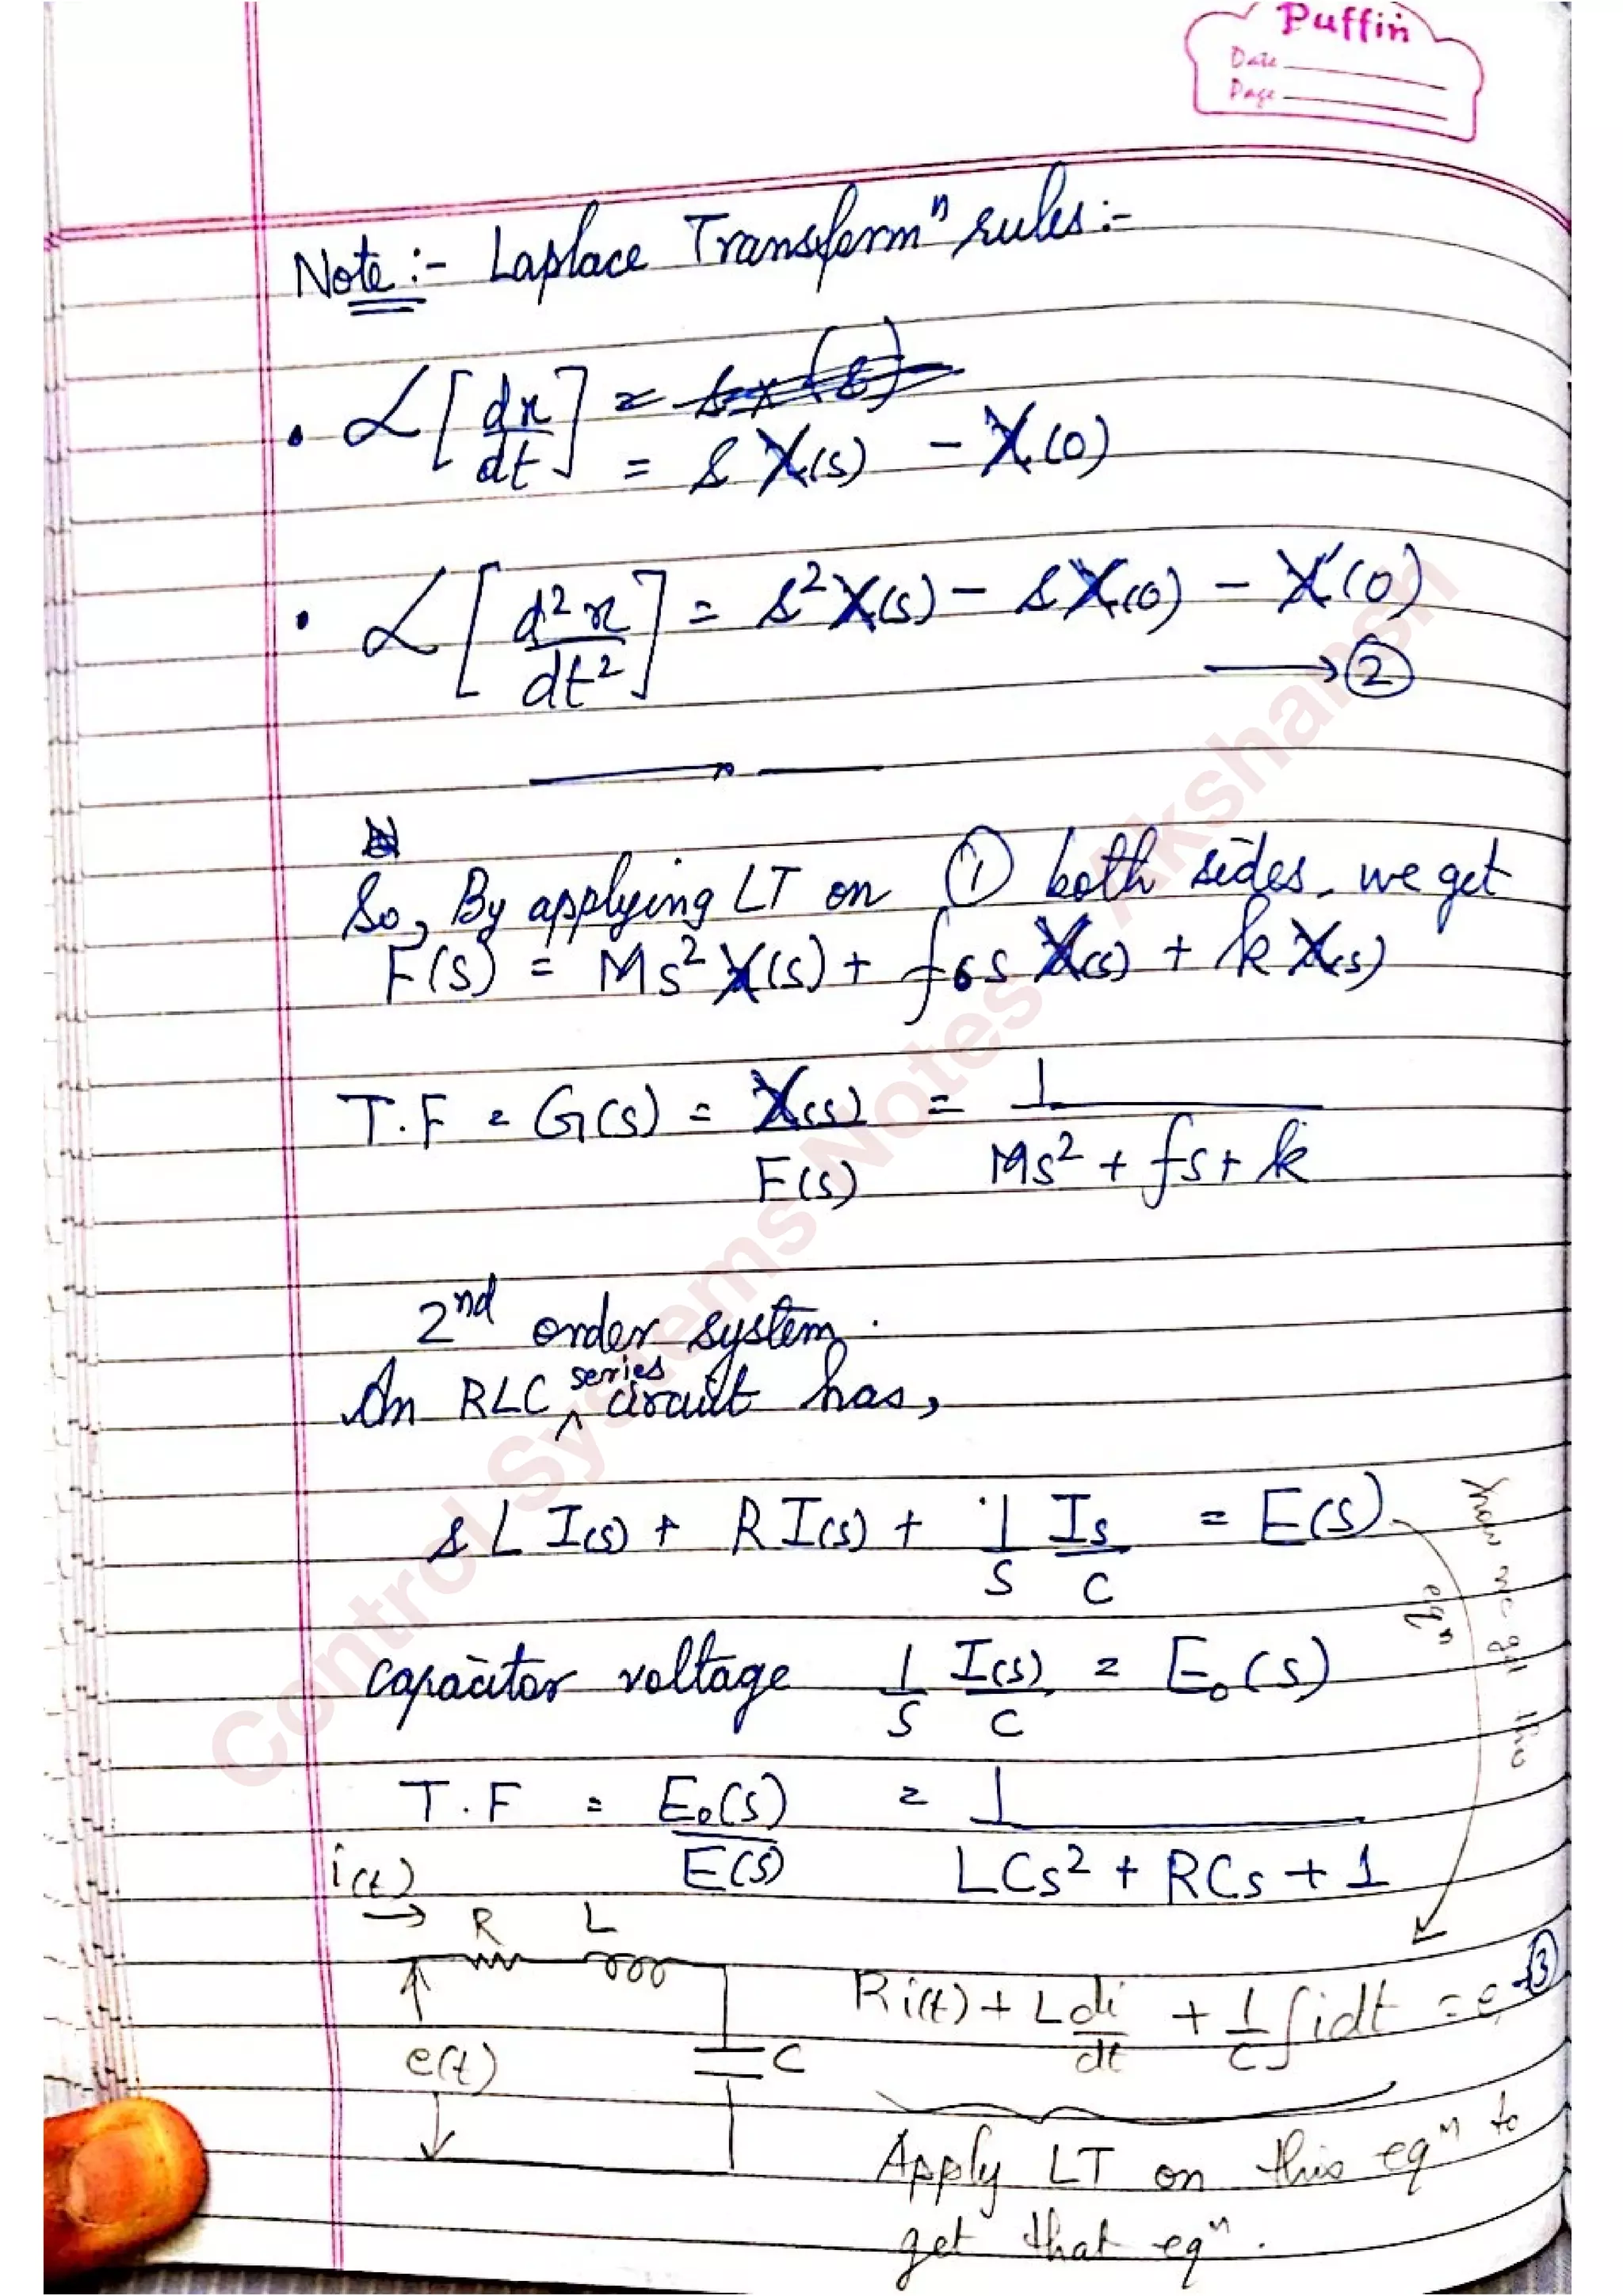 Puffin
Date
Page
Note :- Laplace Transformⁿ rules :-
• ℒ[dx/dt] =
= sX(s) - X(0)
• ℒ[d²x/dt²] = s²X(s) - sX(0) - X'(0)
→ ②
So, By applying LT on ① both sides, we get
F(s) = Ms²X(s) + fsX(s) + kX(s)
T.F = G(s) = X(s)/F(s) = 1/(Ms² + fs + k)
2nd order system.
An RLC series circuit has,
sLI(s) + RI(s) + 1/s Is/C = E(s)
how we get this
eqⁿ
capacitor voltage 1/s I(s)/C = E₀(s)
T.F = E₀(s)/E(s) = 1/(LCs² + RCs + 1)
i(t) →
R L
Ri(t) + L di/dt + 1/C ∫idt = e - ③
e(t)
C
Apply LT on this eqⁿ to
get that eqⁿ.
Control Systems Notes Akshansh